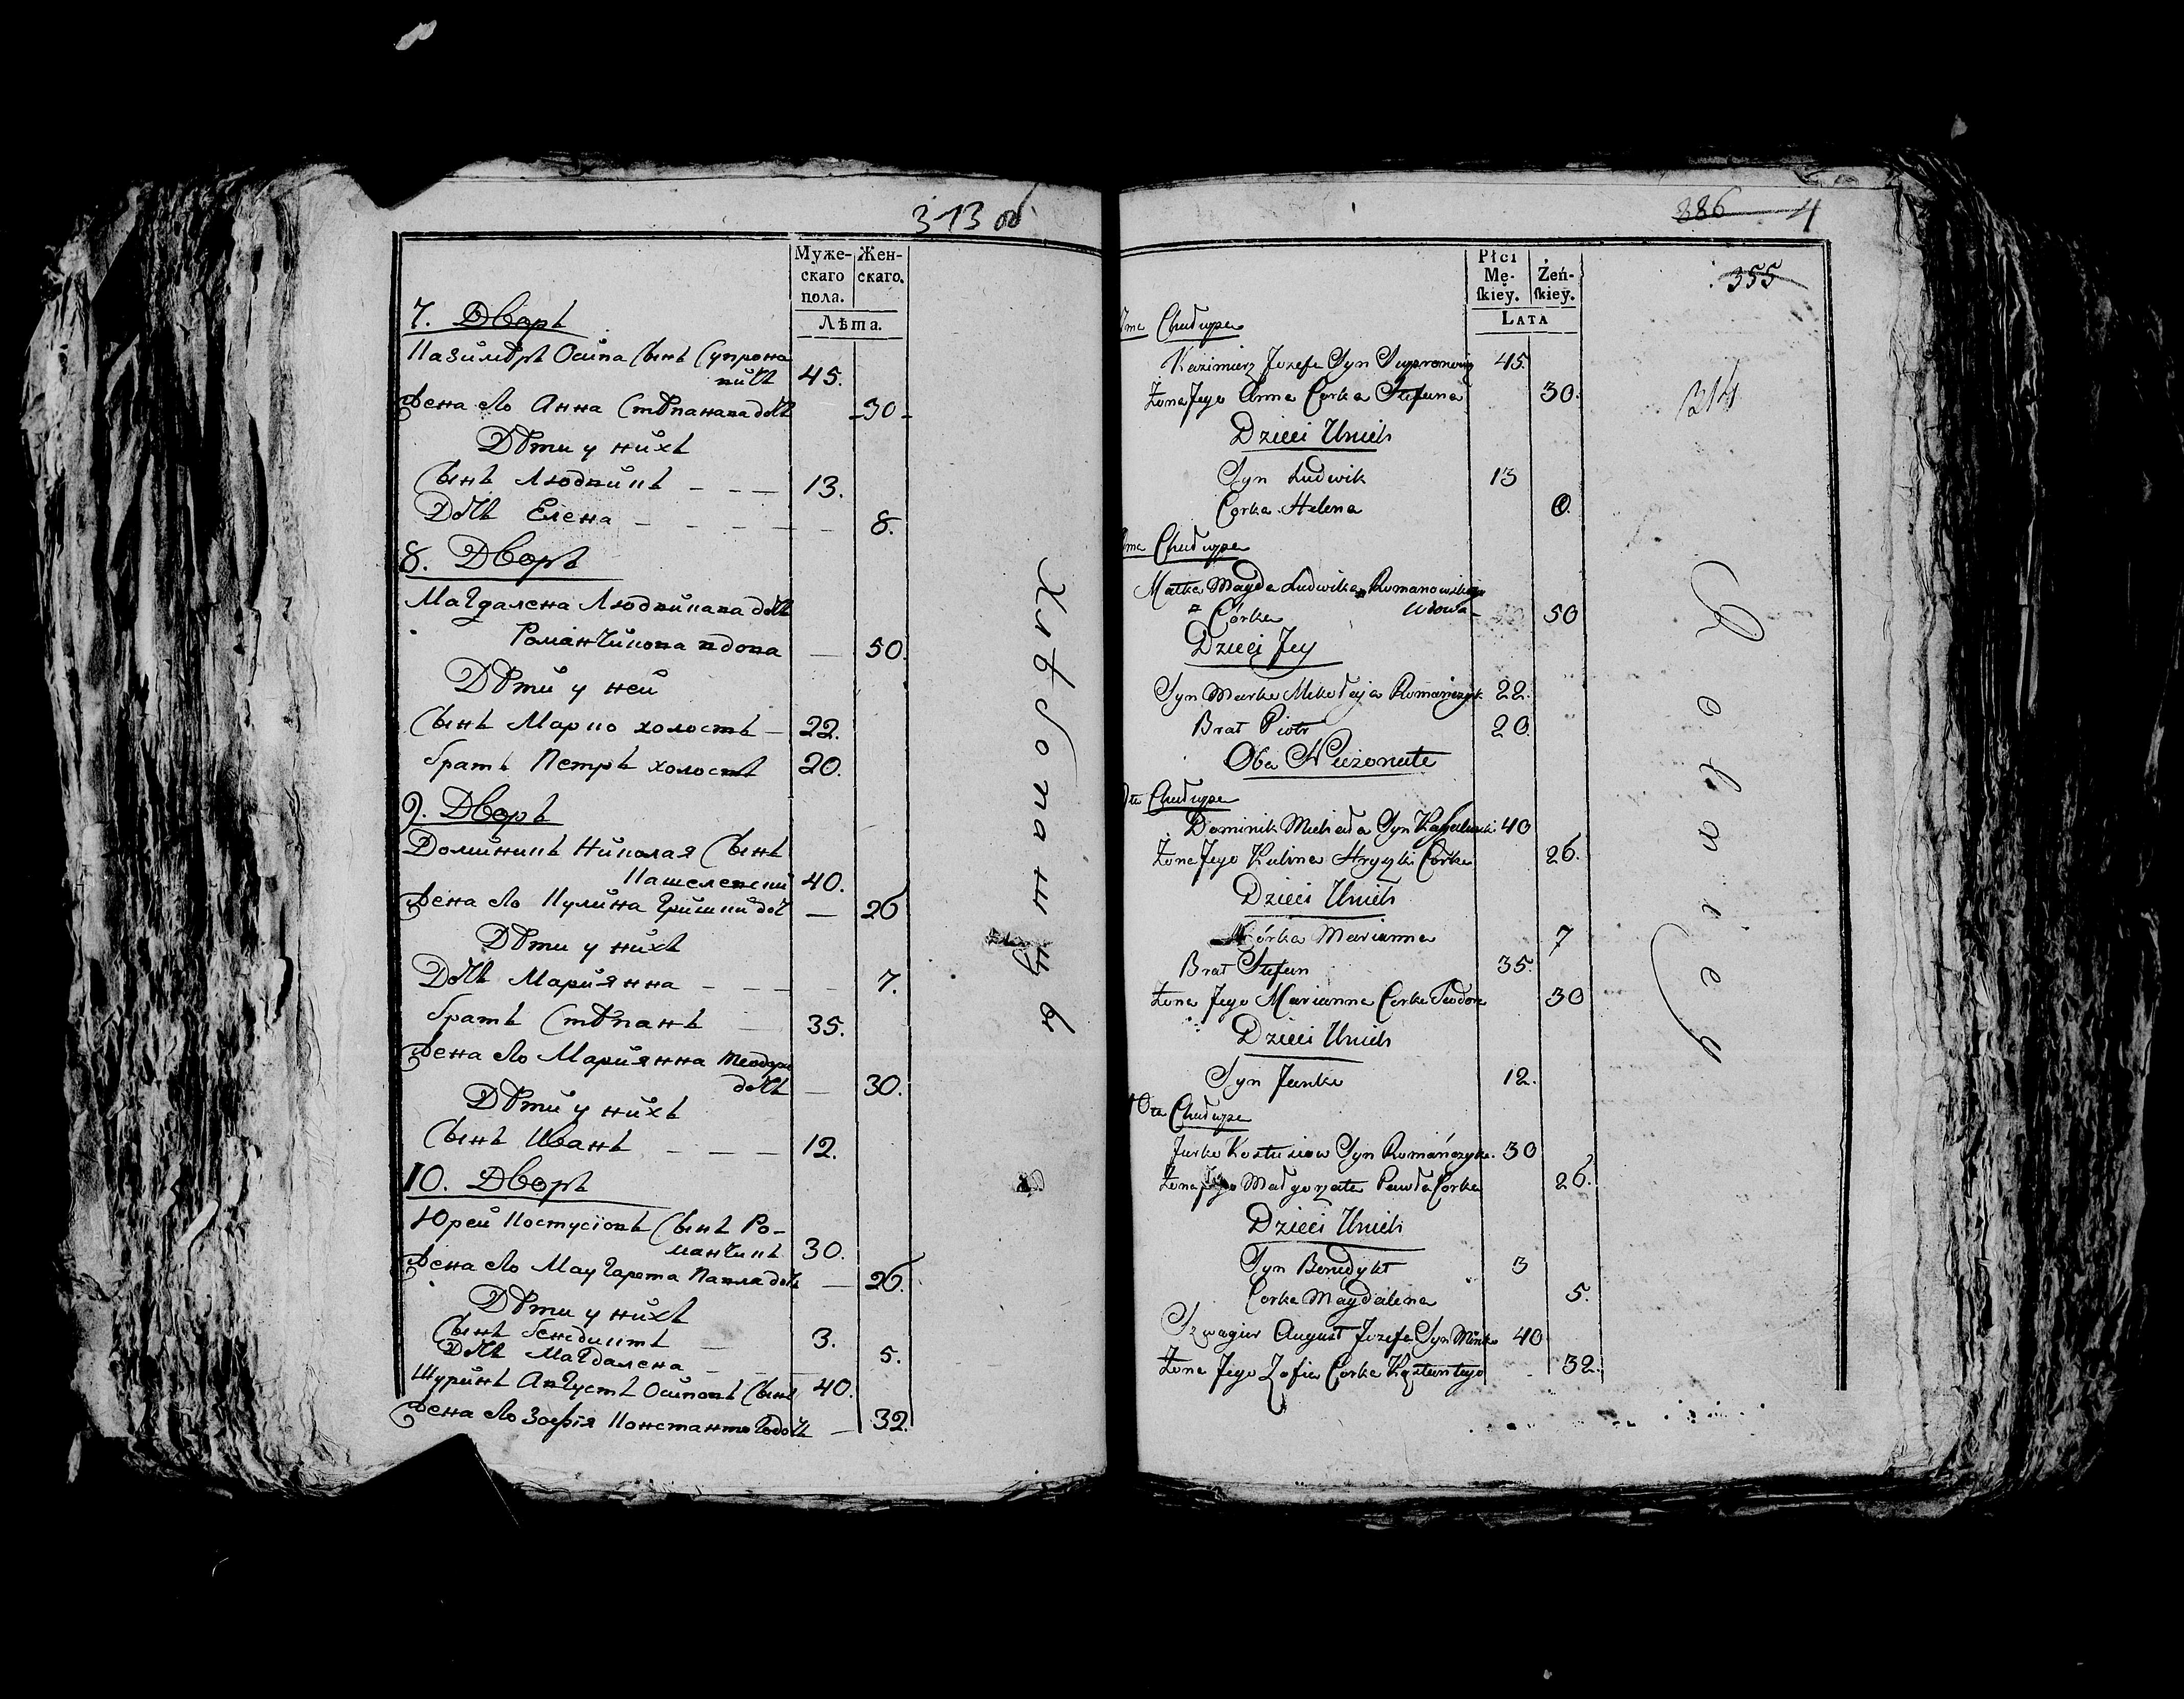 313 об
Муже-
скаго
пола.
Жен-
скаго.
Лѣта.
7. Дворъ
Казимѣръ Осипа Сынъ Супроно
вичъ 45.
Жена Его Анна Стѣпанава дочь 30
Дѣти у нихъ
Сынъ Людвикъ 13.
Дочь Елена 8.
8. Дворъ
Магдалена Людвикава дочь
Романчикова вдова 50.
Дѣти у ней
Сынъ Марко холостъ 22.
братъ Петръ холостъ 20.
9. Дворъ
Доминикъ Николая Сынъ
Кашелевский 40.
Жена Его Кулина Гришки доч 26
Дѣти у нихъ
Дочь Марйянна 7.
братъ Стѣпанъ 35.
Жена Его Марйянна Теодора
дочь 30.
Дѣти у нихъ
Сынъ Иванъ 12.
10. Дворъ
Юрей Костусіовъ Сынъ Ро-
манчикъ 30.
Жена Его Маугарета Павла дочь 26.
Дѣти у нихъ
Сынъ бенедиктъ 3.
Дочь Магдалена 5.
Шуринъ Августъ Осиповъ Сынъ 40.
Жена Его Зофія Константого дочь 32.
Хлѣбопашцы
886 4
355
314
Płci
Mę-
skiey.
Żeń-
skiey.
LATA
7ma Chałupa
Kazimierz Jozefa Syn Supronowicz 45.
Żona Jego Anna Corka Stefana 30.
Dzieci Unich
Syn Ludwik 13
Corka Helena
8ma Chałupa
Matka Magda Ludwika Romanowskiego
Córka wdowa 50
Dzieci Jey
Syn Marko Mikołaja Romańczyk 22.
Brat Piotr 20.
Oba Nieżonate
9ta Chałupa
Dominik Michała Syn 40
Żona Jego Kulina Hryszki Corka 26.
Dzieci Unich
Córka Marianna 7
Brat Stefan 35.
Żona Jego Marianna Corka Teodora 30
Dzieci Unich
Syn Janko 12.
10ta Chałupa
Jurko Kostusiow Syn Romańczyk. 30
Żona Jego Małgorzata Pawła Corka 26.
Dzieci Unich
Syn Benedykt 3
Corka Magdalena 5.
Szwagier August Jozefa Syn 40
Żona Jego Zofia Corka Kąstantego 32.
Rolniey